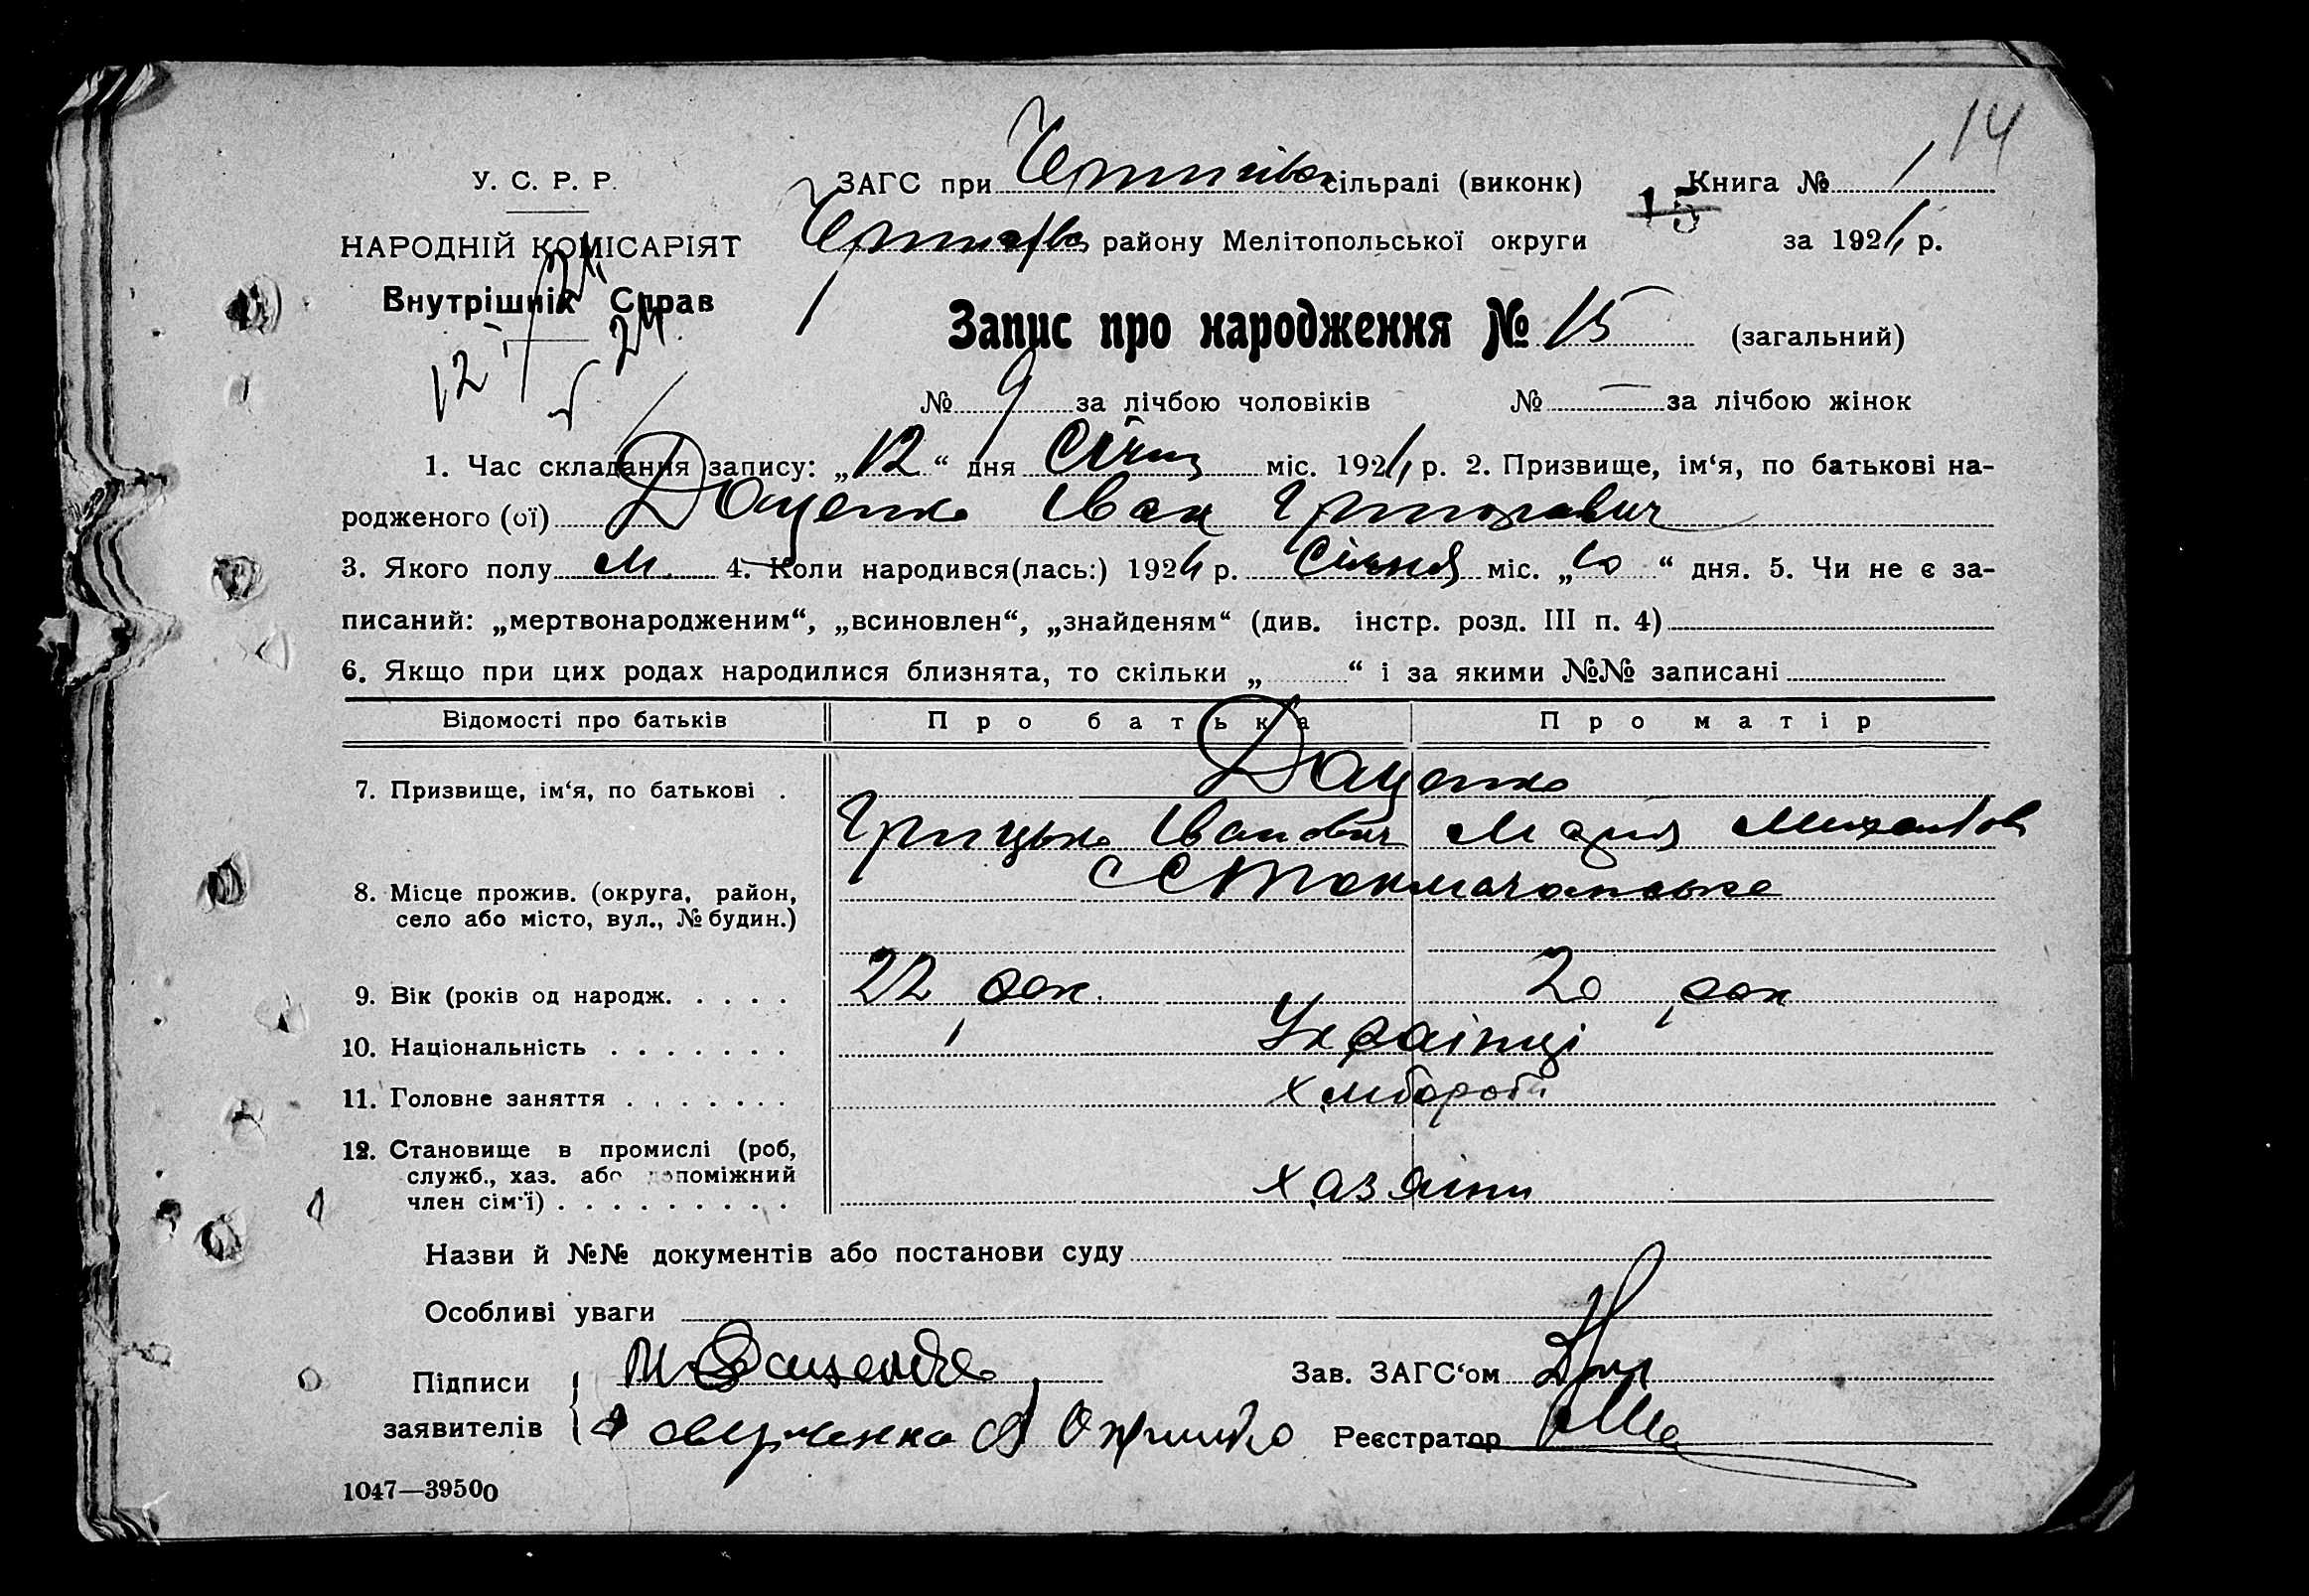 14
У. С. Р. Р.
ЗАГС при сільраді (виконк)
Книга № 1
15
НАРОДНІЙ КОМІСАРІЯТ
району Мелітопольської округи
за 1924 р.
Внутрішніх Справ
12
24
Запис про народження № 15 (загальний)
№ 9 за лічбою чоловіків № — за лічбою жінок
1. Час складання запису: „12“ дня Січня міс. 1924 р. 2. Призвище, ім‘я, по батькові на-
родженого (ої) Доценко Іван Григорович
3. Якого полу м. 4. Коли народився(лась:) 1924 р. Січня міс. „10“ дня. 5. Чи не є за-
писаний: „мертвонародженим“, „всиновлен“, „знайденям“ (див. інстр. розд. III п. 4)
6. Якщо при цих родах народилися близнята, то скільки „ “ і за якими №№ записані
Відомості про батьків Про батька Про матір
7. Призвище, ім‘я, по батькові . Доценко
Грицько Іванович Марія
8. Місце прожив. (округа, район,
село або місто, вул., № будин.)
9. Вік (років од народж. . . . . 22 рок. 20 рок
10. Національність . . . . . . . Українці
11. Головне заняття . . . . . . . хлібороби
12. Становище в промислі (роб,
служб., хаз. або допоміжний
член сім‘ї) . . . . . . . . . хазяїни
Назви й №№ документів або постанови суду
Особливі уваги
Підписи
Зав. ЗАГС‘ом
заявителів
Реєстратор
1047—39500